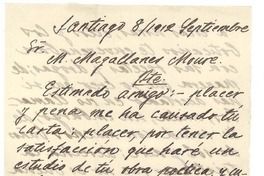 Santiago 8/1912 Septiembre
Sr.
M. Magallanes Moure.
Pte.
Estimado amigo:- placer
y pena me ha causado tú
carta: placer, por tener la
satisfaccion que haré un
estudio de tu obra poética, y